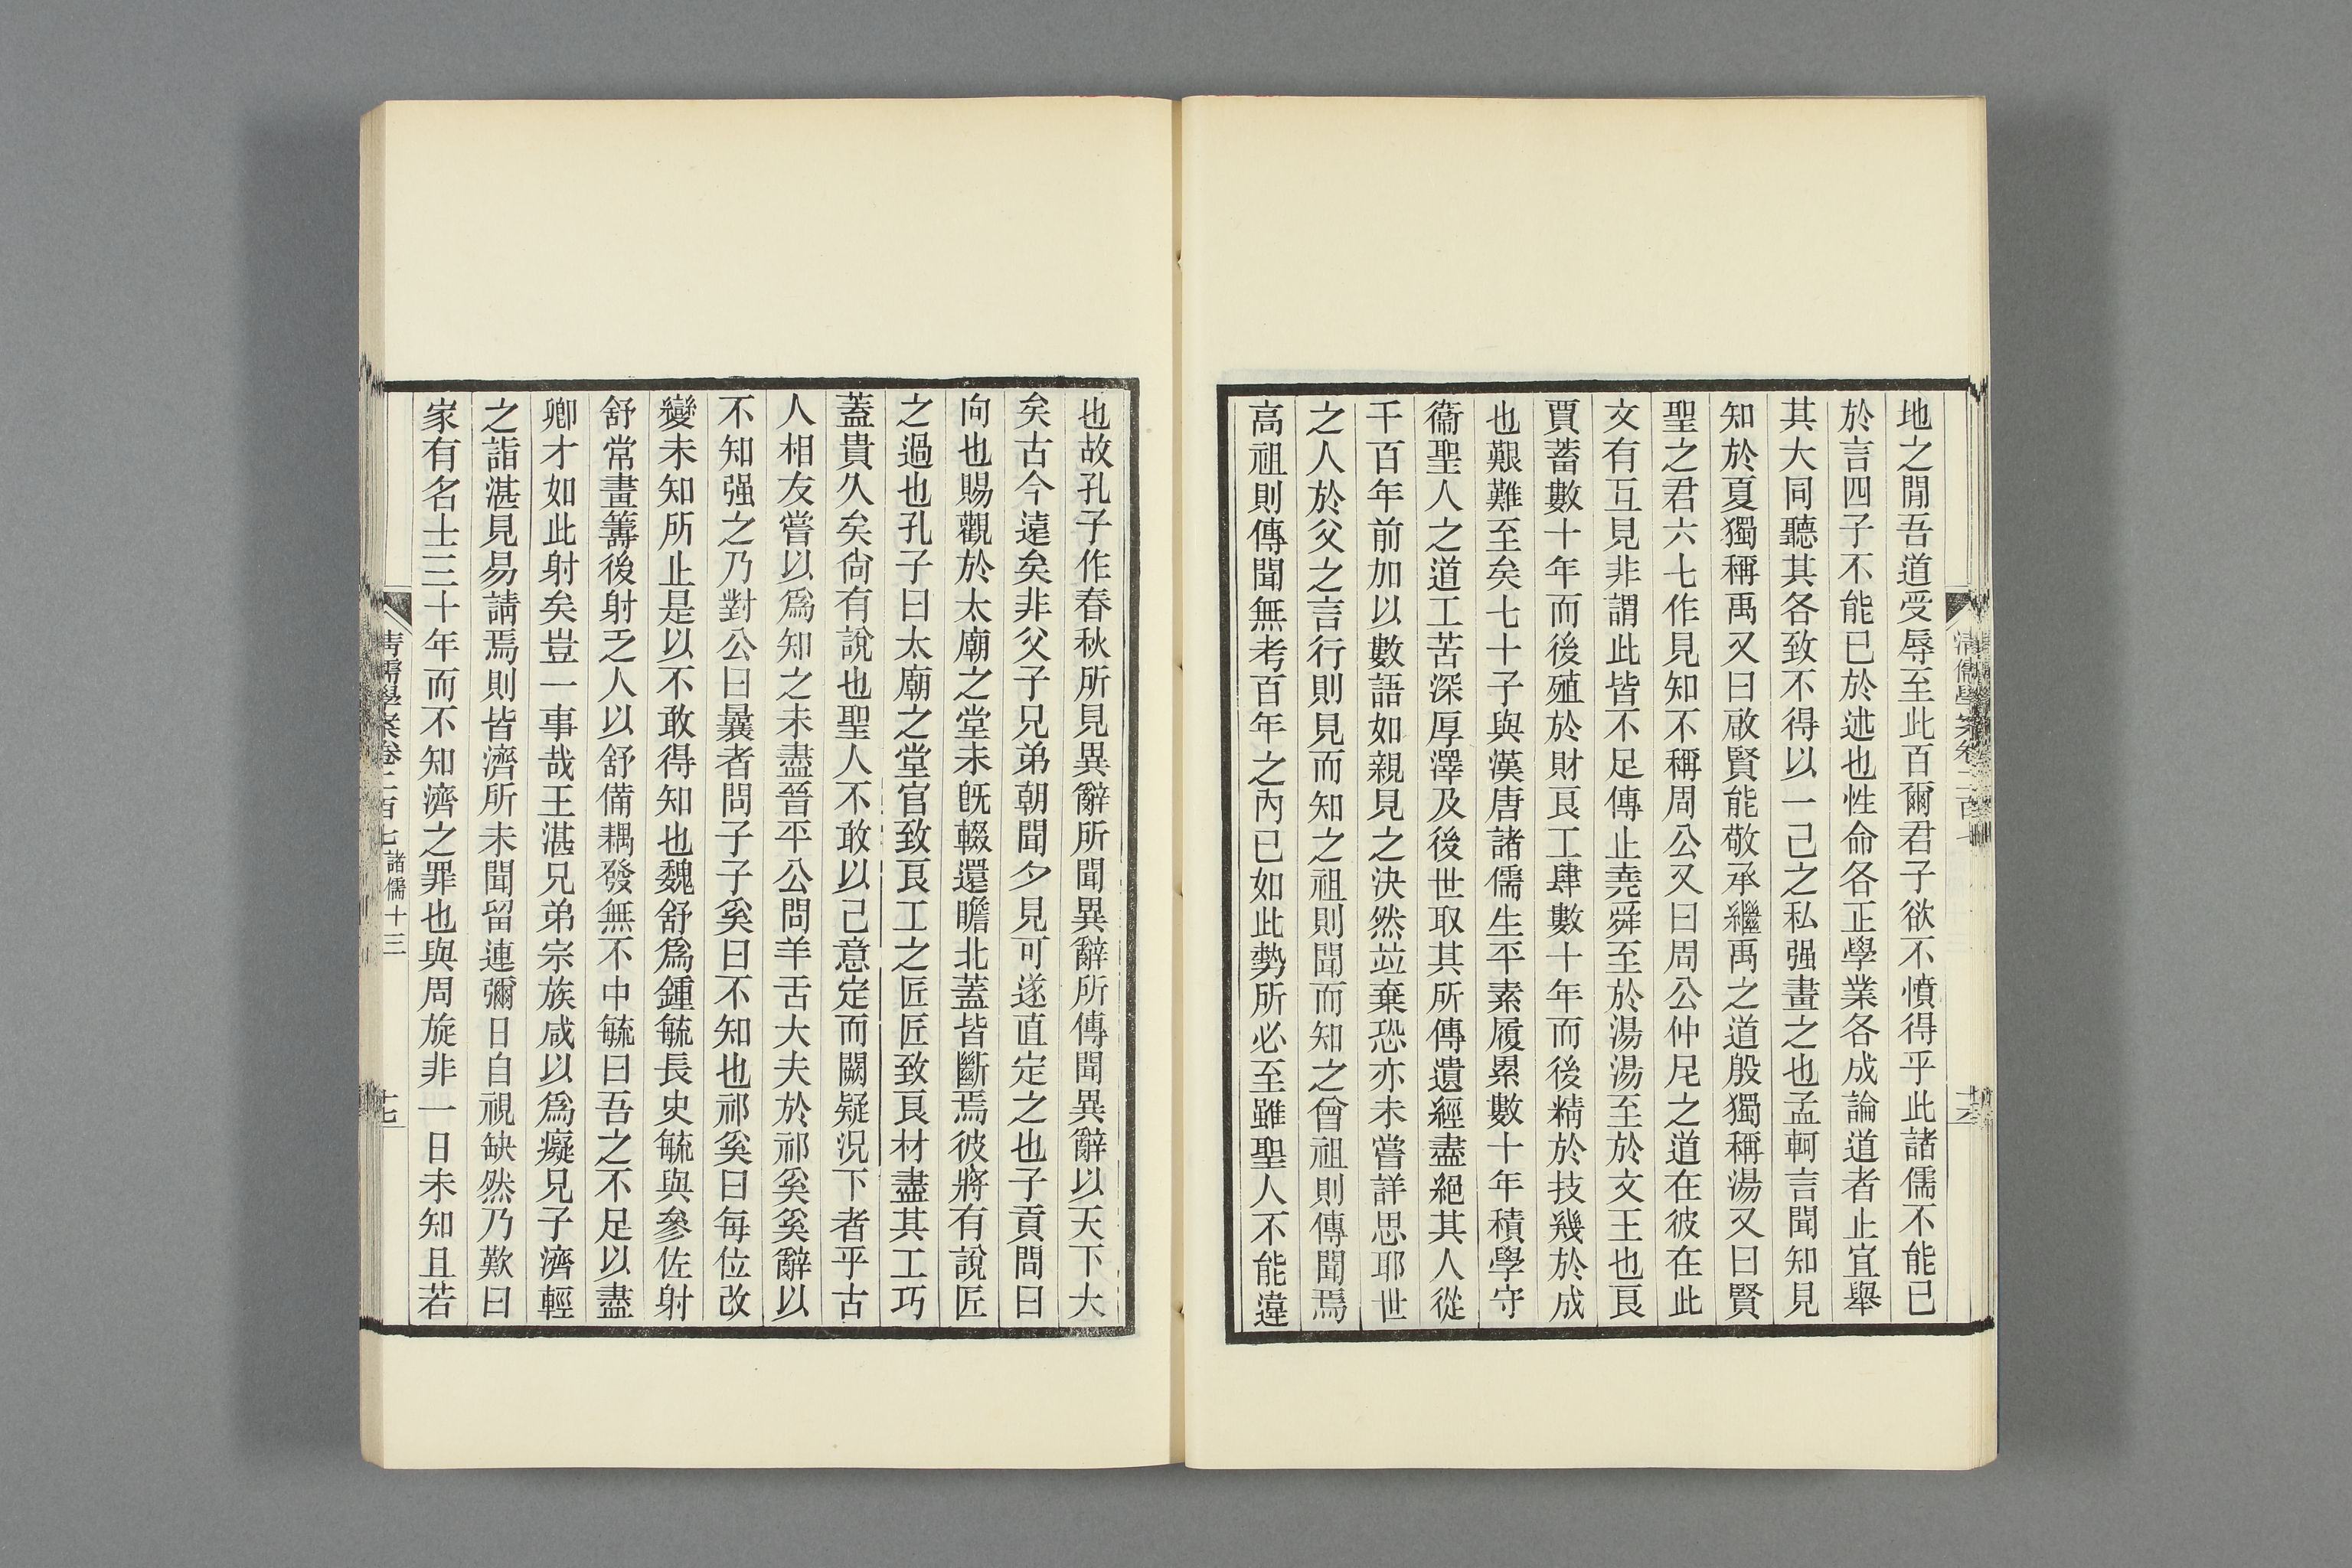 地之閒吾道受辱至此百爾君子欲不憤得乎此諸儒不能已
於言四子不能已於述也性命各正學業各成論道者止宜舉
其大同聽其各致不得以一己之私强畫之也孟軻言聞知見
知於夏獨稱禹又曰啟賢能敬承繼禹之道殷獨稱湯又曰賢
聖之君六七作見知不稱周公又曰周公仲尼之道在彼在此
文有互見非謂此皆不足傳止堯舜至於湯湯至於文王也良
賈蓄數十年而後殖於財良工肆數十年而後精於技幾於成
也艱難至矣七十子與漢唐諸儒生平素履累數十年積學守
衞聖人之道工苦深厚澤及後世取其所傳遺經盡絕其人從
千百年前加以數語如親見之決然竝棄恐亦未嘗詳思耶世
之人於父之言行則見而知之祖則聞而知之曾祖則傳聞焉
高祖則傳聞無考百年之內已如此勢所必至雖聖人不能違
也故孔子作春秋所見異辭所聞異辭所傳聞異辭以天下大
矣古今遠矣非父子兄弟朝聞夕見可遂直定之也子貢問曰
向也賜觀於太廟之堂未旣輟還瞻北蓋皆斷焉彼將有說匠
之過也孔子曰太廟之堂官致良工之匠匠致良材盡其工巧
蓋貴久矣尙有說也聖人不敢以己意定而闕疑況下者乎古
人相友嘗以爲知之未盡晉平公問羊舌大夫於祁奚奚辭以
不知强之乃對公曰曩者問子子奚曰不知也祁奚曰每位改
變未知所止是以不敢得知也魏舒爲鍾毓長史毓與參佐射
舒常畫籌後射乏人以舒備耦發無不中毓曰吾之不足以盡
卿才如此射矣豈一事哉王湛兄弟宗族咸以爲癡兄子濟輕
之詣湛見易請焉則皆濟所未聞留連彌日自視缺然乃歎曰
家有名士三十年而不知濟之罪也與周旋非一日未知且若
清儒學案卷二百七 諸儒十三
十七